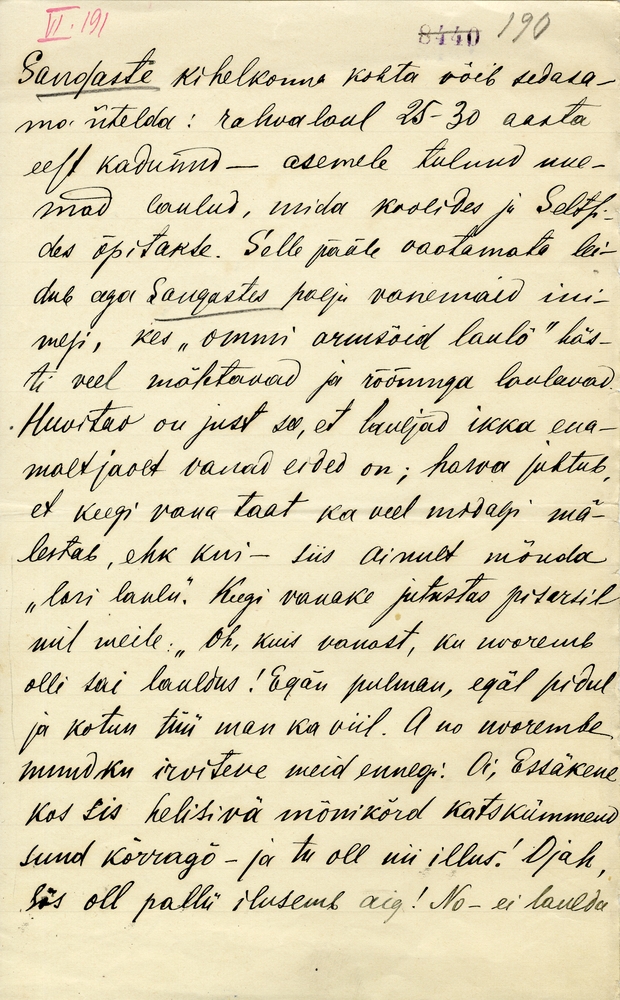 VI. 191
8440 190
Sangaste kihelkonna kohta võib sedasa-
ma ütelda: rahvalaul 25-30 aasta
eest kadunud — asemele tulnud uue-
mad laulud, mida koolides ja Seltsi-
des õpitakse. Selle pääle vaatamata lei-
dub aga Sangastes palju vanemaid ini-
mesi, kes „ommi armsõid laulõ" häs-
ti veel mäletavad ja rõõmuga laulavad
Huvitav on just see, et lauljad ikka ena-
maltjaolt vanad eided on; harva juhtub,
et keegi vana taat ka veel midagi mä-
lestab, ehk kui — siis ainult mõnda
„lori laulu". Keegi vanake jutustas pisarsil-
mil meile: „Oh, kuis vanast, ku nooremb
olli sai lauldus! Egän pulman, egäl pidul
ja kotun tüü man ka viil. A no noorembe
muudku irviteve meid ennegi. Oi, Essäkene
kos sis helisivä mõnikõrd katskümmend
suud kõrragõ — ja tu oll nii illus! Djah,
sis oll pallü ilusemb aig! No — ei laulda